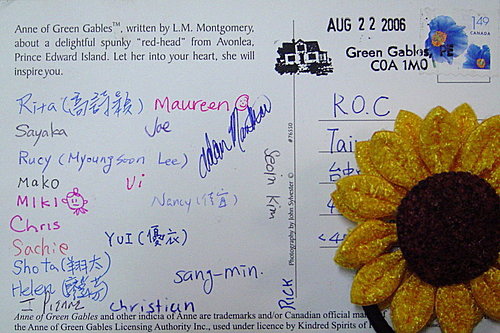 Anne of Green Gables™, written by L.M. Montgomery,
about a delightful spunky "red-head" from Avonlea,
Prince Edward Island. Let her into your heart, she will
inspire you.
AUG 22 2006
Green Gables, PE
C0A 1M0
149
CANADA
Rita (高詩穎) Maureen
Sayaka Joe
Rucy (Myoungsoon Lee)
Mako Vi
MIKI Nancy (佳宜)
Chris
Sachie YUI (優衣)
Shota (翔太)
Helen
sang-min.
christian
Seoin Kim
RICK
Photography by John Sylvester © #76550
R.O.C
Tai
台中
4
<4
Anne of Green Gables and other indicia of Anne are trademarks and/or Canadian official ma
the Anne of Green Gables Licensing Authority Inc., used under licence by Kindred Spirits of